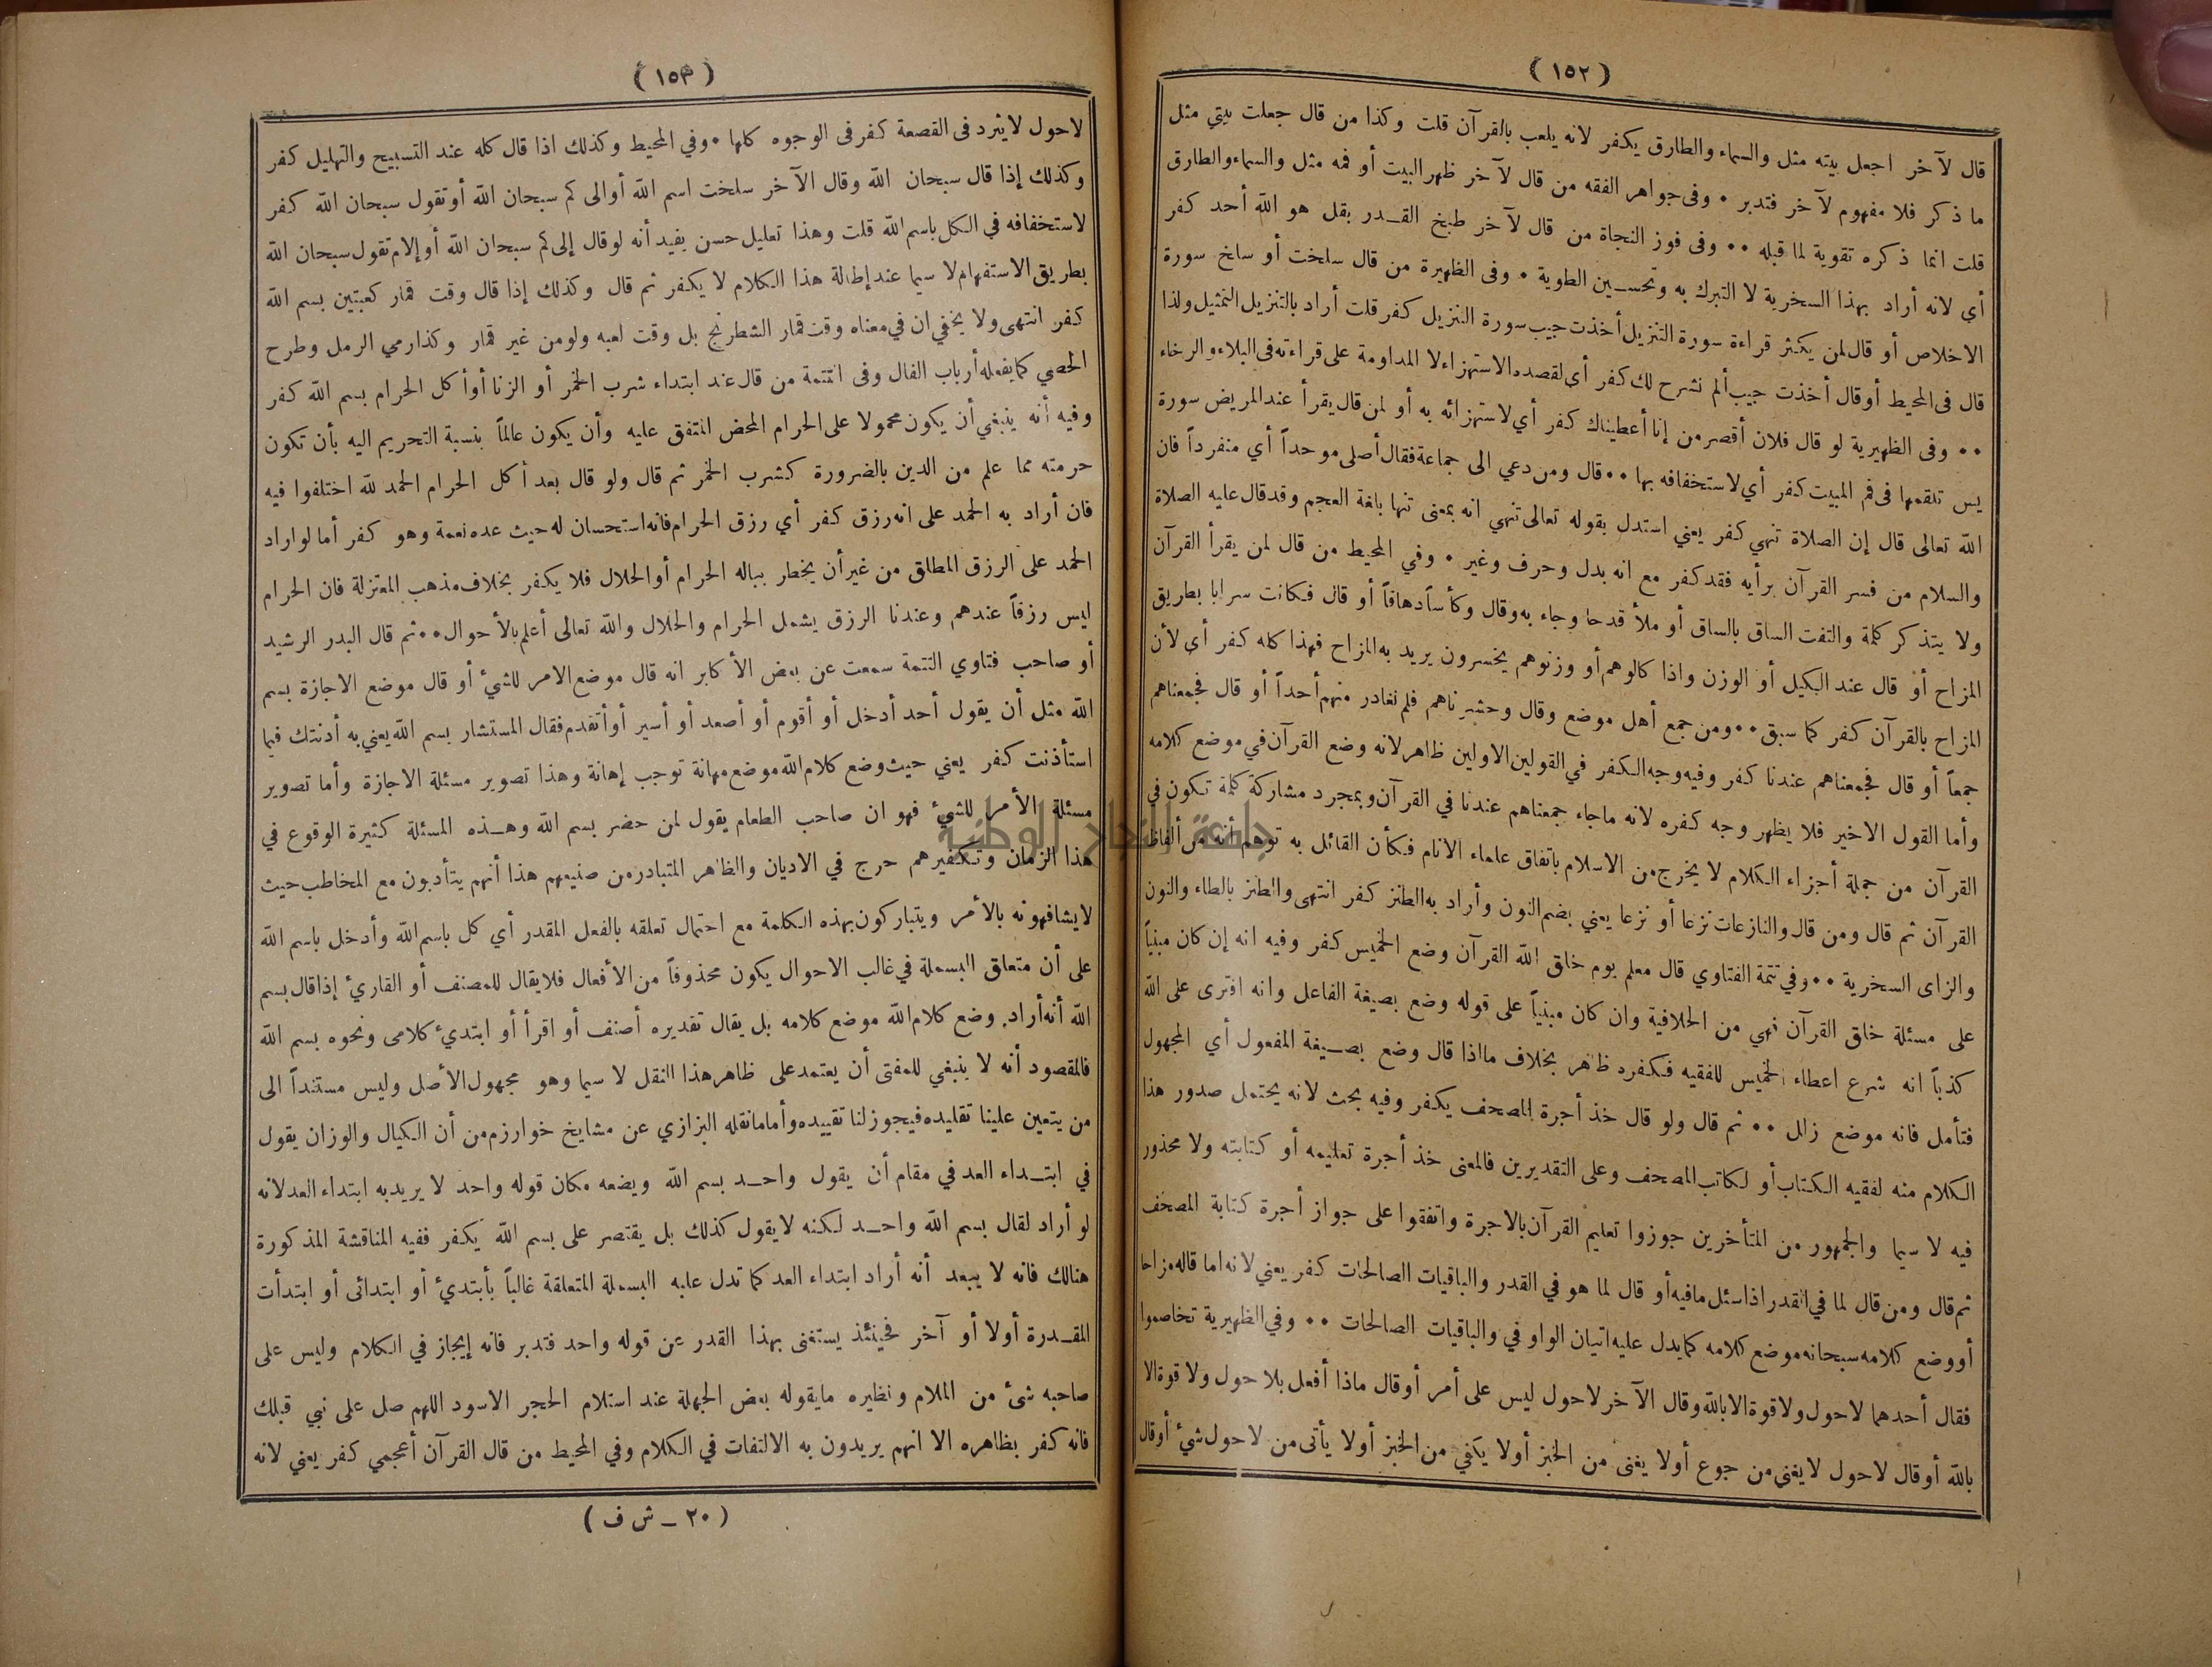 (١٥٢)
قال لآخر اجعل بيته مثل والسماء والطارق يكفر لانه يلعب بالقرآن قلت وكذا من قال جعلت بيتي مثل
ما ذكر فلا مفهوم لآخر فتدبر • وفى جواهر الفقه من قال لآخر ظهر البيت أو فمه مثل والسماء والطارق
قلت انما ذكره تقوية لما قبله •• وفى فوز النجاة من قال لآخر طبخ القدر بقل هو الله أحد كفر
أي لانه أراد بهذا السخرية لا التبرك به وتحسين الطوية • وفى الظهيرة من قال سلخت أو سلخ سورة
الاخلاص أو قال لمن يكثر قراءة سورة التنزيل أخذت جيب سورة التنزيل كفر قلت أراد بالتنزيل التمثيل ولذا
قال فى المحيط أو قال أخذت جيب ألم نشرح لك كفر أي لقصده الاستهزاء لا المداومة على قراءته فى البلاء والرخاء
•• وفى الظهيرية لو قال فلان أقصر من إنا أعطيناك كفر أي لاستهزائه به أو لمن قال يقرأ عند المريض سورة
يس تلقمها فى فم الميت كفر أي لاستخفافه بها •• قال ومن دعي الى جماعة فقال أصلى موحداً أي منفرداً فان
الله تعالى قال إن الصلاة تنهي كفر يعني استدل بقوله تعالى تنهي انه بمعنى تنها بلغة العجم وقد قال عليه الصلاة
والسلام من فسر القرآن برأيه فقد كفر مع انه بدل وحرف وغير • وفي المحيط من قال لمن يقرأ القرآن
ولا يتذكر كلمة والتفت الساق بالساق أو ملأ قدحا وجاء به وقال وكأساً دهاقاً أو قال فكانت سرابا بطريق
المزاح أو قال عند الكيل أو الوزن واذا كالوهم أو وزنوهم يخسرون يريد به المزاح فهذا كله كفر أي لأن
المزاح بالقرآن كفر كما سبق •• ومن جمع أهل موضع وقال وحشرناهم فلم نغادر منهم أحداً أو قال فجمعناهم
جمعاً أو قال فجمعناهم عندنا كفر وفيه وجه الكفر في القولين الاولين ظاهر لانه وضع القرآن في موضع كلامه
وأما القول الاخير فلا يظهر وجه كفره لانه ماجاء جمعناهم عندنا في القرآن وبمجرد مشاركة كلمة تكون في
القرآن من جملة أجزاء الكلام لا يخرج من الاسلام باتفاق علماء الانام فكأن القائل به توهم أنه من ألفاظ
القرآن ثم قال ومن قال والنازعات نزعا أو نزعا يعني بضم النون وأراد به الطنز كفر انتهى والطنز بالطاء والنون
والزاى السخرية •• وفي تتمة الفتاوي قال معلم يوم خلق الله القرآن وضع الخميس كفر وفيه انه إن كان مبنياً
على مسئلة خلق القرآن نهي من الخلافية وان كان مبنياً على قوله وضع بصيغة الفاعل وانه افترى على الله
كذباً انه شرع اعطاء الخميس للفقيه فكفره ظاهر بخلاف مااذا قال وضع بصيغة المفعول أي المجهول
فتأمل فانه موضع زلل •• ثم قال ولو قال خذ أجرة المصحف يكفر وفيه بحث لانه يحتمل صدور هذا
الكلام منه لفقيه الكتاب أو لكاتب المصحف وعلى التقديرين فالمعنى خذ أجرة تعليمه أو كتابته ولا محذور
فيه لا سيما والجمهور من المتأخرين جوزوا تعليم القرآن بالاجرة واتفقوا على جواز أجرة كتابة المصحف
ثم قال ومن قال لما في القدر اذا سئل مافيه أو قال لما هو في القدر والباقيات الصالحات كفر يعني لانه اما قاله مزاحا
أو وضع كلامه سبحانه موضع كلامه كما يدل عليه اتيان الواو في والباقيات الصالحات •• وفي الظهيرية تخاصموا
فقال أحدهما لاحول ولا قوة الا بالله وقال الآخر لاحول ليس على أمر أو قال ماذا أفعل بلا حول ولا قوة الا
بالله أو قال لاحول لا يغنى من جوع أولا يغنى من الخبز أولا يكفي من الخبز أولا يأتى من لاحول شيء أو قال
(١٥٣)
لاحول لا يثرد فى القصعة كفر فى الوجوه كلها • وفي المحيط وكذلك اذا قال كله عند التسبيح والتهليل كفر
وكذلك إذا قال سبحان الله وقال الآخر سلخت اسم الله أو الى كم سبحان الله أو تقول سبحان الله كفر
لاستخفافه في الكل باسم الله قلت وهذا تعليل حسن يفيد أنه لو قال إلى كم سبحان الله أو إلام تقول سبحان الله
بطريق الاستفهام لا سيما عند إطالة هذا الكلام لا يكفر ثم قال وكذلك إذا قال وقت قمار كعبتين بسم الله
كفر انتهى ولا يخفي ان في معناه وقت قمار الشطرنج بل وقت لعبه ولو من غير قمار وكذا رمي الرمل وطرح
الحصي كما يفعله أرباب الفال وفى التتمة من قال عند ابتداء شرب الخمر أو الزنا أو أكل الحرام بسم الله كفر
وفيه أنه ينبغي أن يكون محمولا على الحرام المحض المتفق عليه وأن يكون عالماً بنسبة التحريم اليه بأن تكون
حرمته مما علم من الدين بالضرورة كشرب الخمر ثم قال ولو قال بعد أكل الحرام الحمد لله اختلفوا فيه
فان أراد به الحمد على انه رزق كفر أي رزق الحرام فانه استحسان له حيث عده نعمة وهو كفر أما لو اراد
الحمد على الرزق المطلق من غير أن يخطر بباله الحرام أو الحلال فلا يكفر بخلاف مذهب المعتزلة فان الحرام
ليس رزقاً عندهم وعندنا الرزق يشمل الحرام والحلال والله تعالى أعلم بالأحوال •• ثم قال البدر الرشيد
أو صاحب فتاوي التتمة سمعت عن بعض الأكابر انه قال موضع الامر للشيء أو قال موضع الاجازة بسم
الله مثل أن يقول أحد أدخل أو أقوم أو أصعد أو أسير أو أتقدم فقال المستشار بسم الله يعني به أدنتك فيما
استأذنت كفر يعني حيث وضع كلام الله موضع مهانة توجب إهانة وهذا تصوير مسئلة الاجازة وأما تصوير
مسئلة الأمر للشيء فهو ان صاحب الطعام يقول لمن حضر بسم الله وهذه المسئلة كثيرة الوقوع في
هذا الزمان وتكفيرهم حرج في الاديان والظاهر المتبادر من صنيعهم هذا أنهم يتأدبون مع المخاطب حيث
لايشافهونه بالأمر ويتباركون بهذه الكلمة مع احتمال تعلقه بالفعل المقدر أي كل باسم الله وأدخل باسم الله
على أن متعلق البسملة في غالب الاحوال يكون محذوفاً من الأفعال فلا يقال للمصنف أو القاريء إذا قال بسم
الله أنه أراد وضع كلام الله موضع كلامه بل يقال تقديره أصنف أو اقرأ أو ابتديء كلامى ونحوه بسم الله
فالمقصود أنه لا ينبغي للمفتى أن يعتمد على ظاهر هذا النقل لا سيما وهو مجهول الأصل وليس مستنداً الى
من يتعين علينا تقليده فيجوز لنا تقييده وأما مانقله البزازي عن مشايخ خوارزم من أن الكيال والوزان يقول
في ابتداء العد في مقام أن يقول واحد بسم الله ويضعه مكان قوله واحد لا يريد به ابتداء العد لانه
لو أراد لقال بسم الله واحد لكنه لا يقول كذلك بل يقتصر على بسم الله يكفر ففيه المناقشة المذكورة
هنالك فانه لا يبعد أنه أراد ابتداء العد كما تدل عليه البسملة المتعلقة غالباً بأبتديء أو ابتدائى أو ابتدأت
المقدرة أولا أو آخر فحينئذ يستغنى بهذا القدر عن قوله واحد فتدبر فانه إيجاز في الكلام وليس على
صاحبه شئ من الملام ونظيره مايقوله بعض الجهلة عند استلام الحجر الاسود اللهم صل على نبي قبلك
فانه كفر بظاهره الا انهم يريدون به الالتفات في الكلام وفي المحيط من قال القرآن أعجمي كفر يعني لانه
(٢٠ ـ ش ف)
جامعة النجاح الوطنية